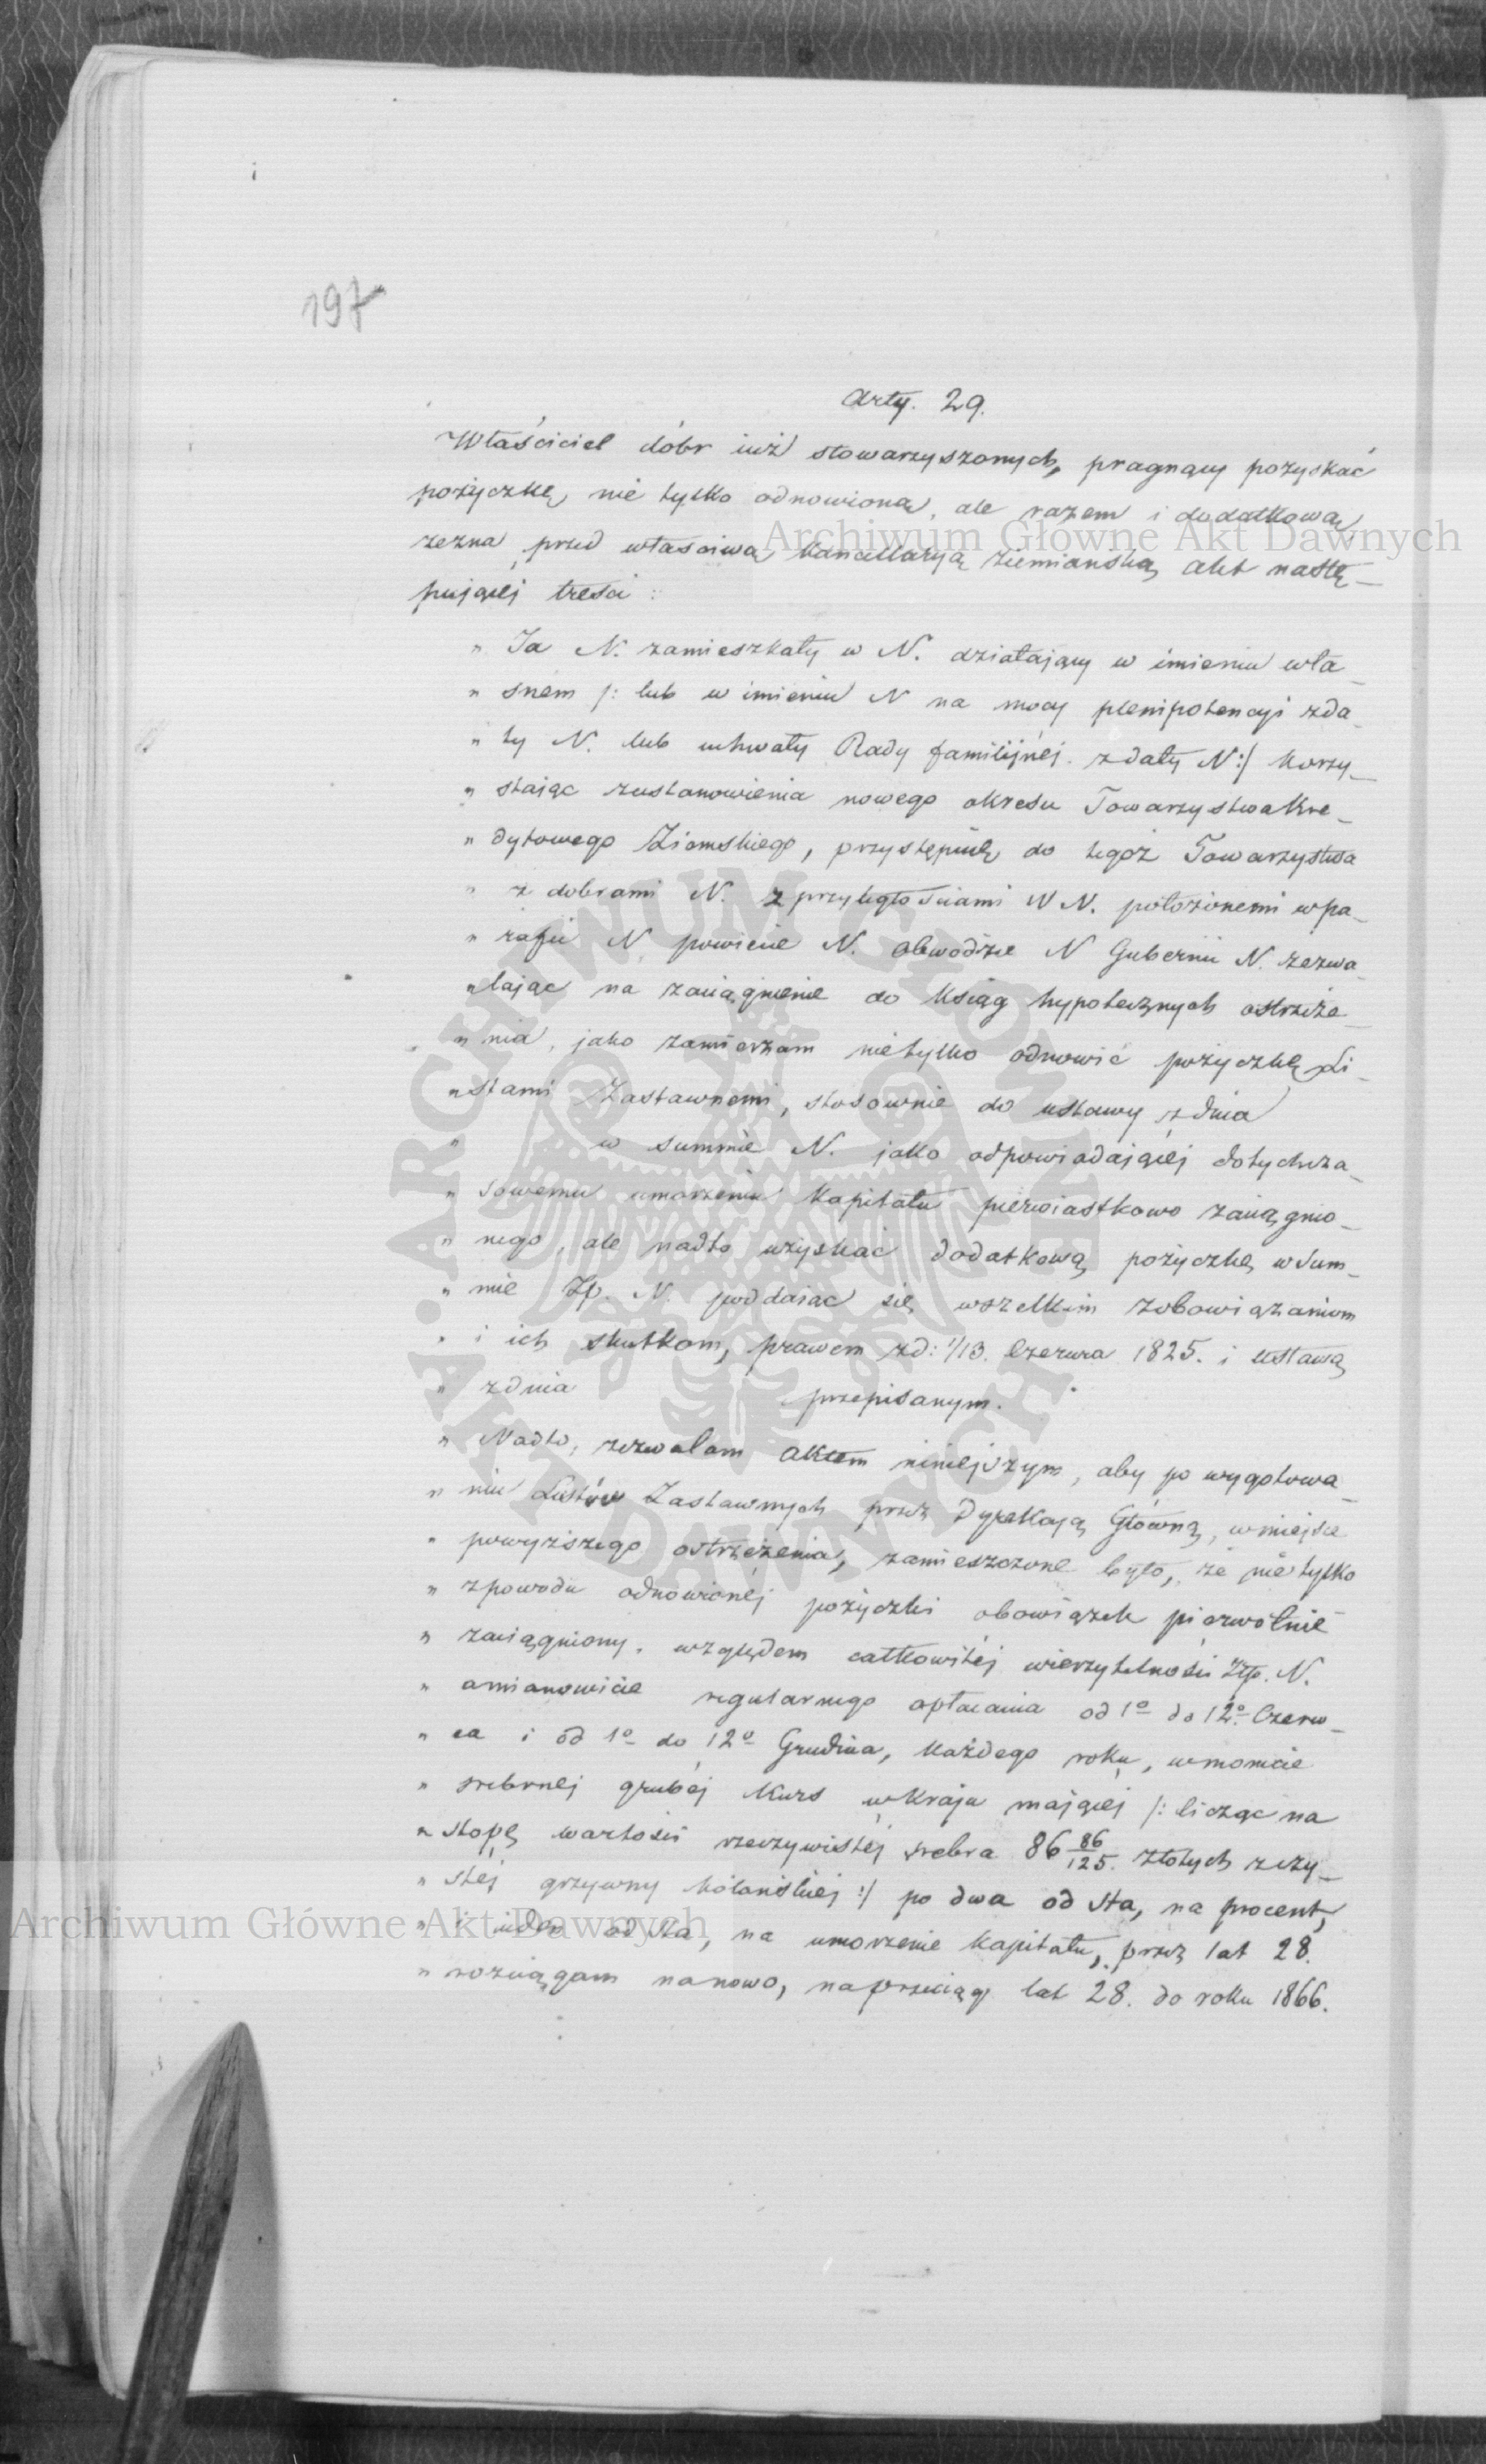 197
Arty. 29.
Właściciel dóbr iuż stowarzyszonych, pragnący pozyskać
pożyczkę, nie tylko odnowioną, ale razem i dodatkową,
zezna przed właściwą Kancellaryą Ziemiańską, akt nastę-
pującej treści:
„ Ja N. zamieszkały w N. działający w imieniu wła-
„ sném /: lub w imieniu N na mocy plenipotencyi zda-
„ ty N. lub uchwały Rady familijnéj z daty N :/ korzy-
„ stając zustanowienia nowego okresu Towarzystwa Kre-
„ dytowego Ziemskiego, przystępuię do tegóż Towarzystwa
„ z dobrami N. z przyległościami W N. położonemi wpa-
„ rafii N, powiecie N. Obwodzie N Gubernii N. zezwa-
„ lając na zaciągnienie do Ksiąg hypotecznych ostrzeże-
„ nia, jako zamierzam nietylko odnowić pożyczkę Li-
„ stami Zastawnemi, stosownie do ustawy z dnia
„ w summie N. jako odpowiadającéj dotychcza-
„ sowemu umorzeniu Kapitału pierwiastkowo zaciągnio-
„ nego, ale nadto uzyskać dodatkową pożyczkę w Sum-
„ mie Zp. N. poddaiąc się wszelkim zobowiązaniom
„ i ich skutkom, prawem zd: 1/13. Czerwca 1825. i ustawą
„ zdnia przepisanym.
„ Nadto, zezwalam aktem niniejszym, aby po wygotowa-
„ niu Listów Zastawnych przez Dyrekcyą Główną, wmiejsce
„ powyższego ostrzeżenia, zamieszczone było, że nie tylko
„ zpowodu odnowionéj pożyczki obowiązek pierwotnie
„ zaciągniony, względem całkowitéj wierzytelności Złp. N.
„ amianowicie regularnego opłacania od 1º do 12º. Czerw-
„ ca i od 1º do 12º Grudnia, każdego roku, wmonecie
„ srebrnéj grubéj Kurs w Kraju mającéj /: licząc na
„ stopę wartości rzeczywistéj srebra 86 86/125. złotych zczy-
„ stéj grzywny kolońskiéj :/ po dwa od sta, na procent,
„ i ieden od sta, na umorzenie Kapitału, przez lat 28.
„ rozciągam nanowo, naprzeciąg lat 28. do roku 1866.
Archiwum Główne Akt Dawnych
Archiwum Główne Akt Dawnych
ARCHIWUM GŁÓWNE AKT DAWNYCH